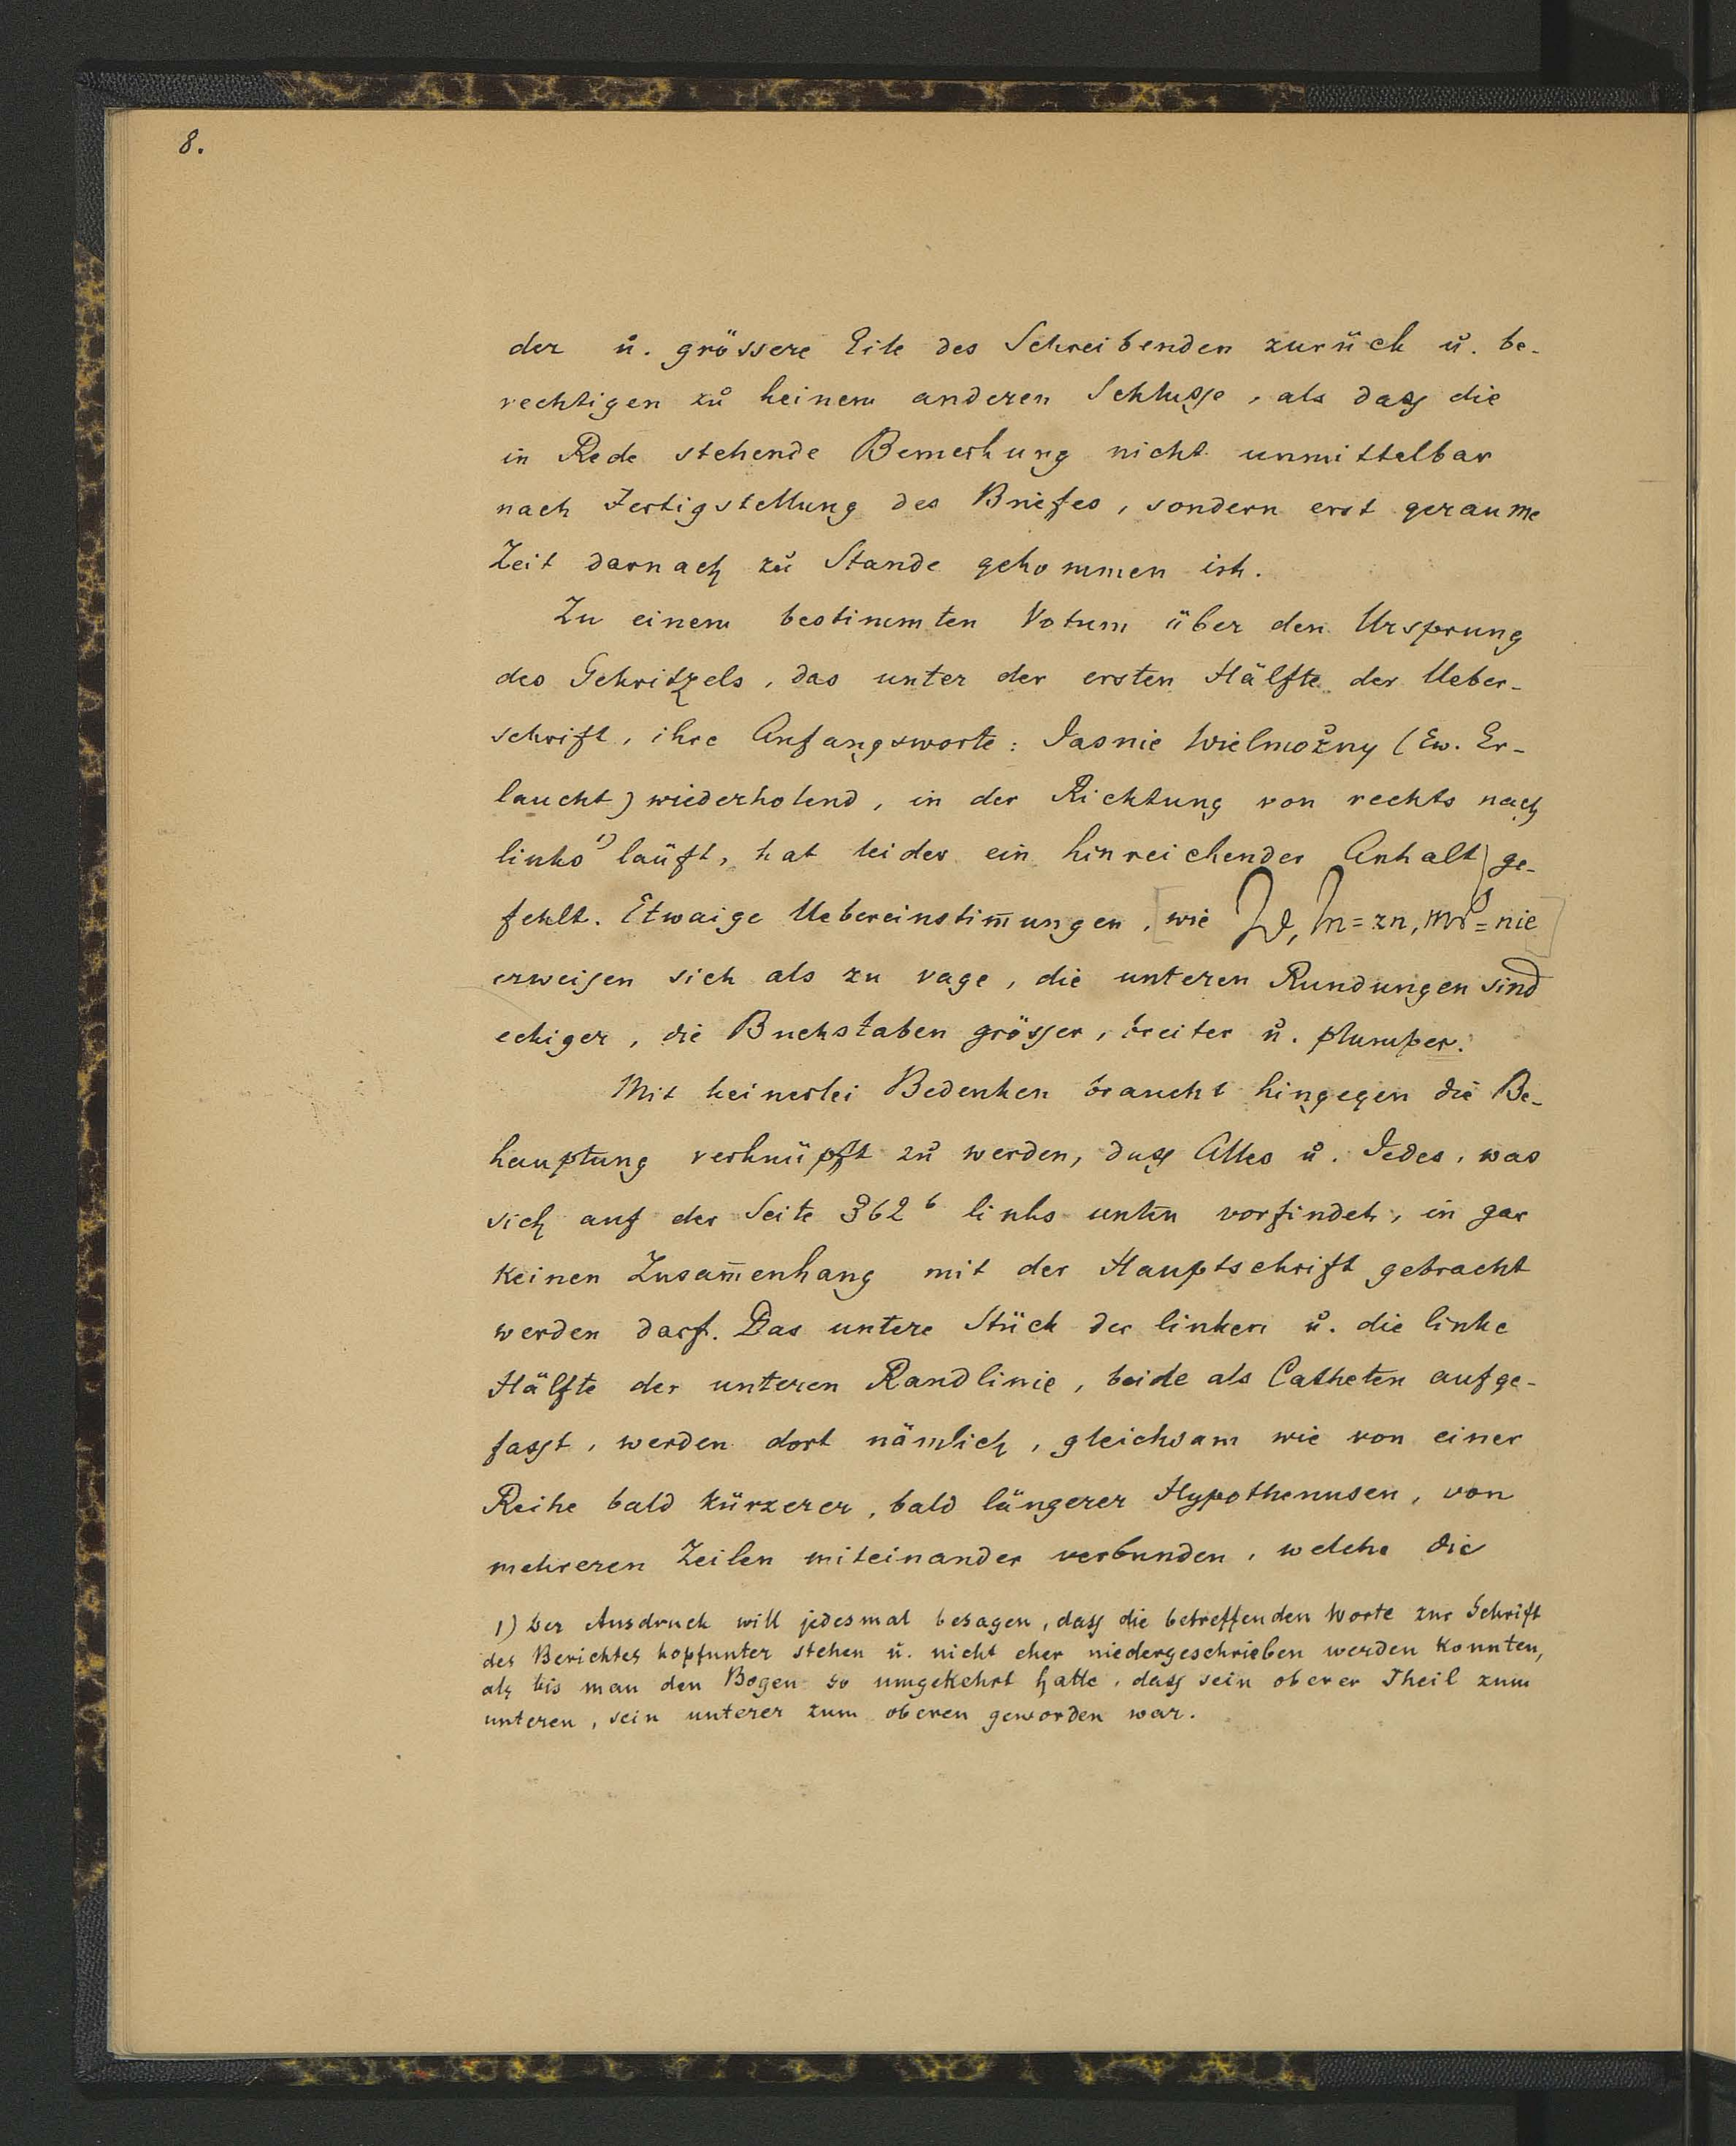 8.
der u. grössere Eile des Schreibenden zurück u. be-
rechtigen zu keinem anderen Schlusse, als dass die
in Rede stehende Bemerkung nicht unmittelbar
nach Fertigstellung des Briefes, sondern erst geraume
Zeit darnach zu Stande gekommen ist.
Zu einem bestimmten Votum über den Ursprung
des Gekritzels, das unter der ersten Hälfte der Ueber-
schrift, ihre Anfangsworte: Jasnie Wielmożny (Ew. Er-
laucht) wiederholend, in der Richtung von rechts nach
links 1) läuft, hat leider ein hinreichender Anhalt ge-
fehlt. Etwaige Uebereinstim̅ungen, [wie = zn, = nie]
erweisen sich als zu vage, die unteren Rundungen sind
eckiger, die Buchstaben grösser, breiter u. plumper.
Mit keinerlei Bedenken braucht hingegen die Be-
hauptung verknüpft zu werden, dass Alles u. Jedes, was
sich auf der Seite 362 b links unten vorfindet, in gar
keinen Zusam̅enhang mit der Hauptschrift gebracht
werden darf. Das untere Stück der linken u. die linke
Hälfte der unteren Randlinie, beide als Catheten aufge-
fasst, werden dort nämlich, gleichsam wie von einer
Reihe bald kürzerer, bald längerer Hypothenusen, von
mehreren Zeilen miteinander verbunden, welche die
1) Der Ausdruck will jedesmal besagen, dass die betreffenden Worte zur Schrift
des Berichtes kopfunter stehen u. nicht eher niedergeschrieben werden konnten,
als bis man den Bogen so umgekehrt hatte, dass sein oberer Theil zum
unteren, sein unterer zum oberen geworden war.